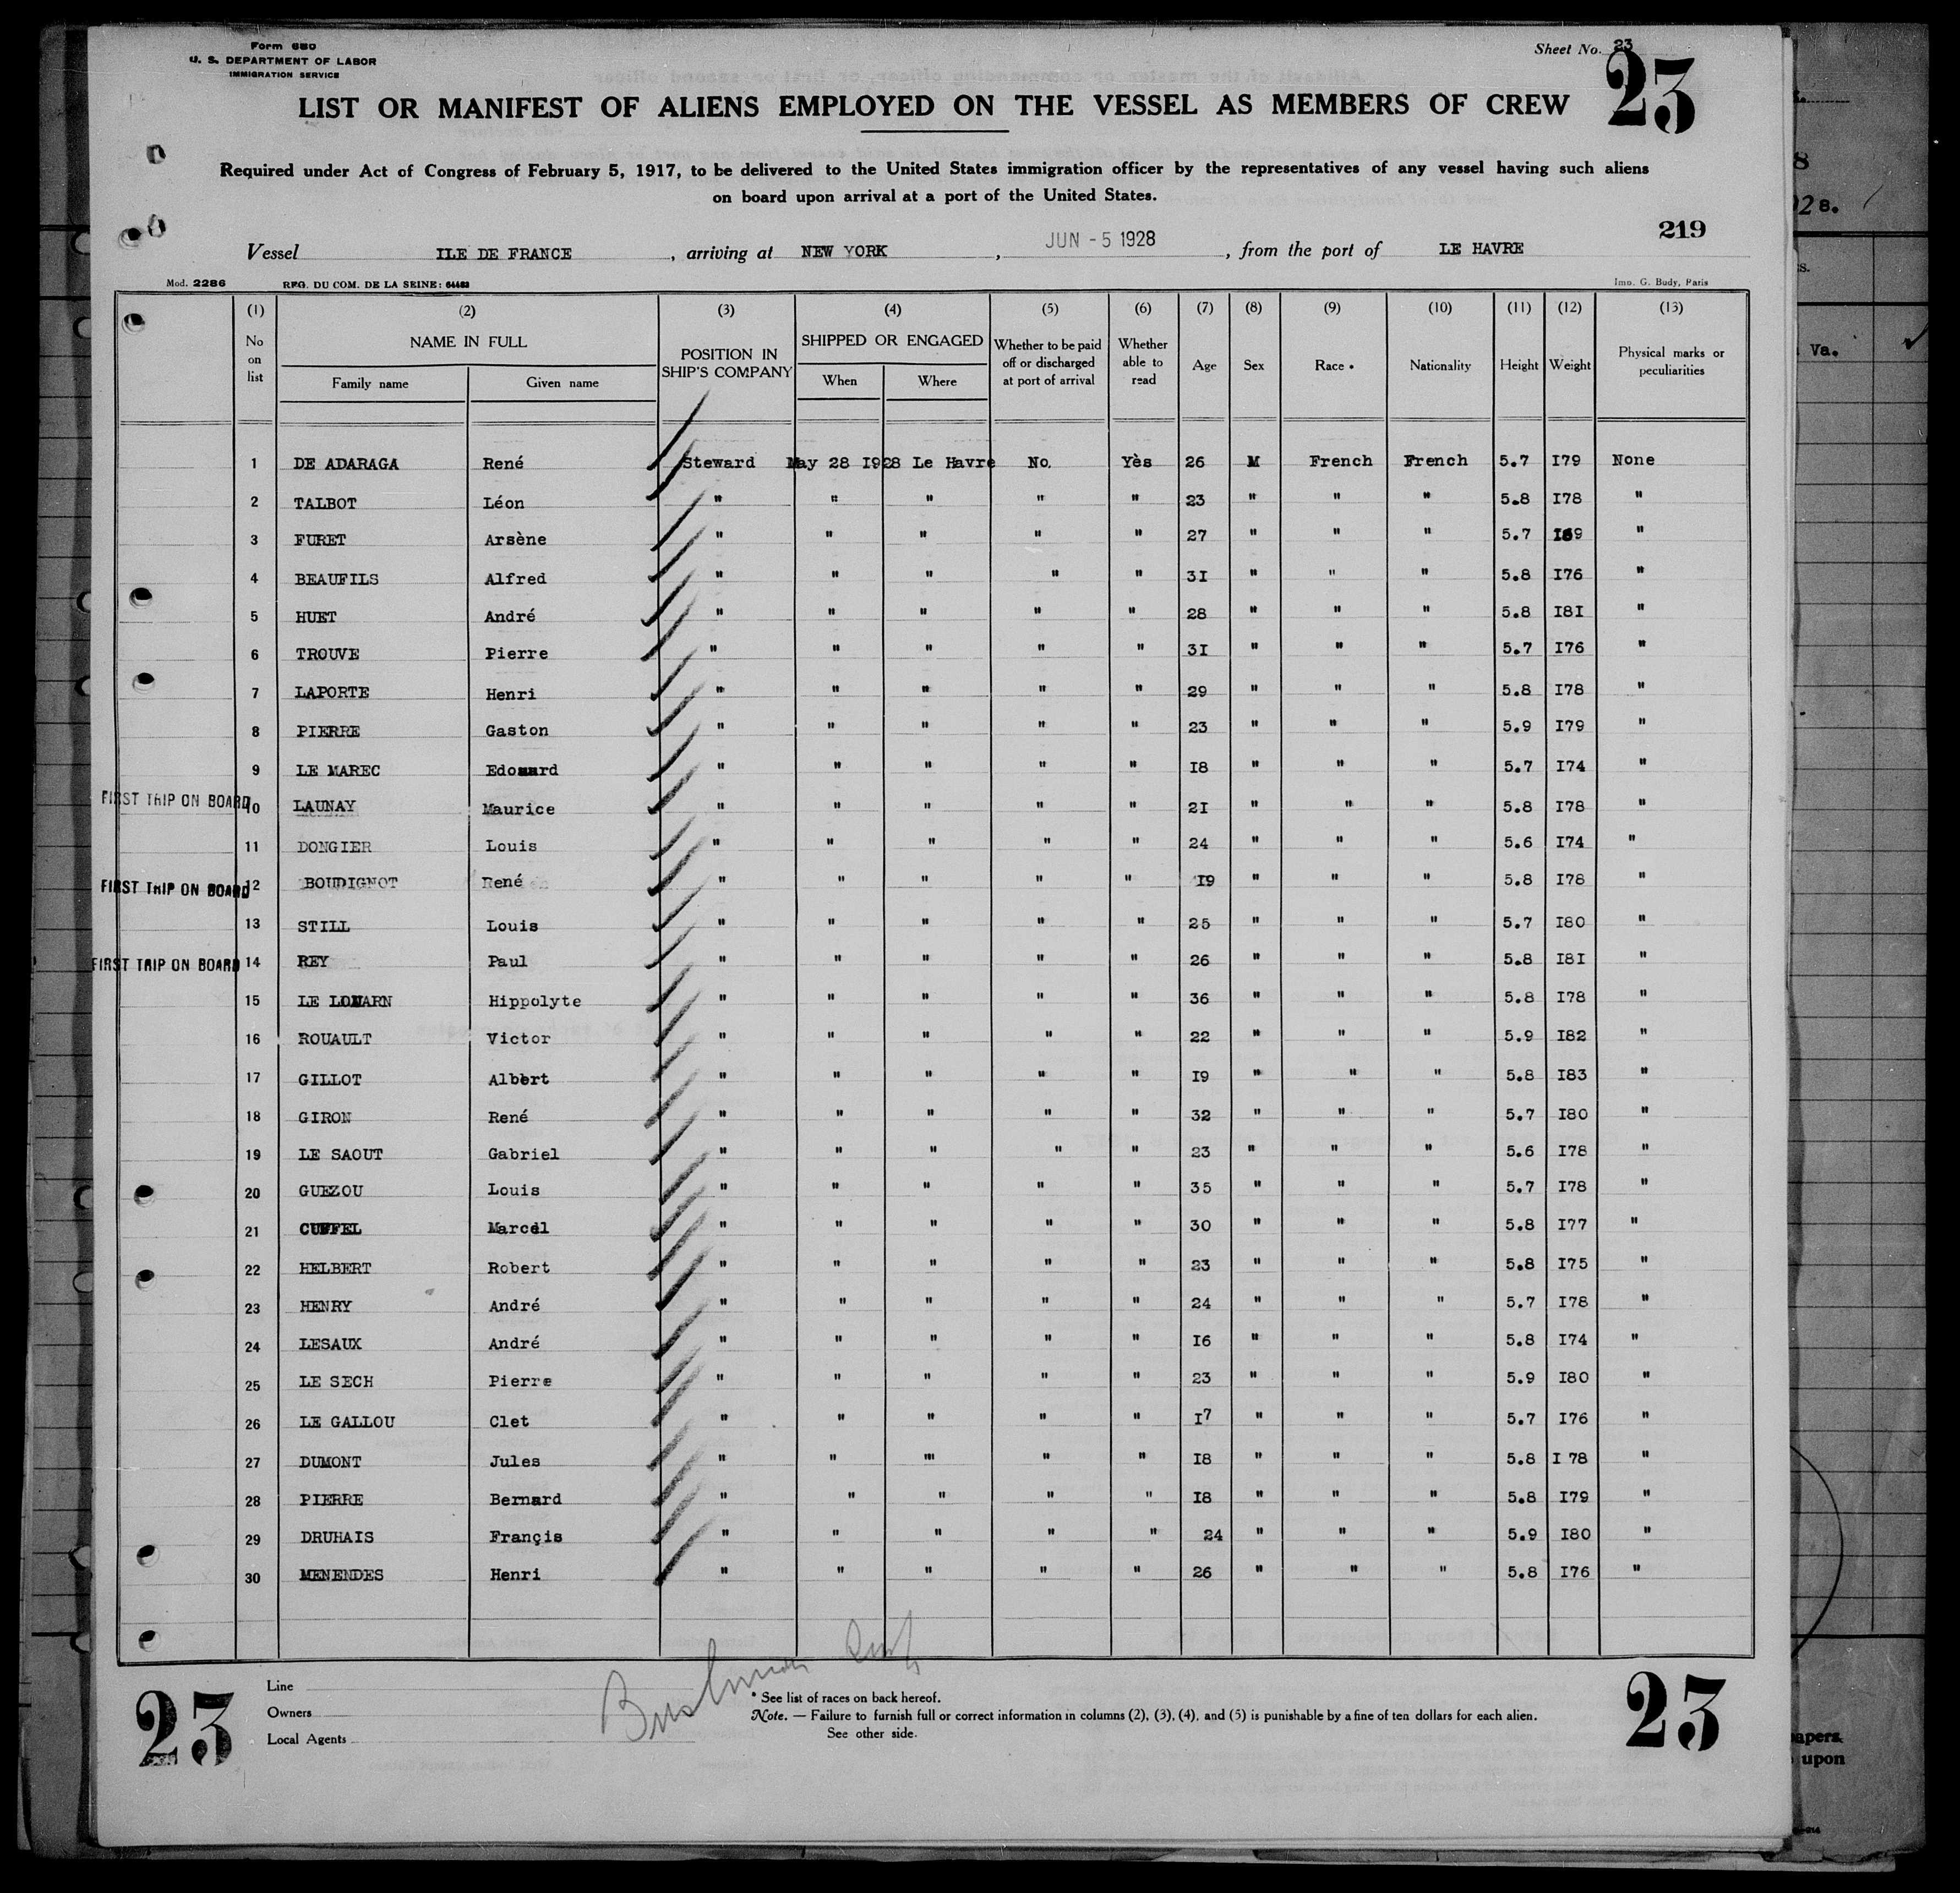 Form 680
U. S. DEPARTMENT OF LABOR
IMMIGRATION SERVICE
Sheet No. 23
23
LIST OR MANIFEST OF ALIENS EMPLOYED ON THE VESSEL AS MEMBERS OF CREW
Required under Act of Congress of February 5, 1917, to be delivered to the United States immigration officer by the representatives of any vessel having such aliens
on board upon arrival at a port of the United States.
219
Vessel ILE DE FRANCE, arriving at NEW YORK, JUN - 5 1928, from the port of LE HAVRE
Mod. 2286 REG. DU COM. DE LA SEINE: 64483 Imp. G. Budy, Paris
(1) (2) (3) (4) (5) (6) (7) (8) (9) (10) (11) (12) (13)
No on list NAME IN FULL Family name Given name POSITION IN SHIP'S COMPANY SHIPPED OR ENGAGED When Where Whether to be paid off or discharged at port of arrival Whether able to read Age Sex Race * Nationality Height Weight Physical marks or peculiarities
1 DE ADARAGA René Steward May 28 I928 Le Havre No. Yès 26 M French French 5.7 I79 None
2 TALBOT Léon " " " " " 23 " " " 5.8 I78 "
3 FURET Arsène " " " " " 27 " " " 5.7 I69 "
4 BEAUFILS Alfred " " " " " 3I " " " 5.8 I76 "
5 HUET André " " " " " 28 " " " 5.8 I8I "
6 TROUVE Pierre " " " " " 3I " " " 5.7 I76 "
7 LAPORTE Henri " " " " " 29 " " " 5.8 I78 "
8 PIERRE Gaston " " " " " 23 " " " 5.9 I79 "
9 LE MAREC Edouard " " " " " I8 " " " 5.7 I74 "
FIRST TRIP ON BOARD 10 LAUNAY Maurice " " " " " 2I " " " 5.8 I78 "
11 DONGIER Louis " " " " " 24 " " " 5.6 I74 "
FIRST TRIP ON BOARD 12 BOUDIGNOT René " " " " " I9 " " " 5.8 I78 "
13 STILL Louis " " " " " 25 " " " 5.7 I80 "
FIRST TRIP ON BOARD 14 REY Paul " " " " " 26 " " " 5.8 I8I "
15 LE Hippolyte " " " " " 36 " " " 5.8 I78 "
16 ROUAULT Victor " " " " " 22 " " " 5.9 I82 "
17 GILLOT Albert " " " " " I9 " " " 5.8 I83 "
18 GIRON René " " " " " 32 " " " 5.7 I80 "
19 LE SAOUT Gabriel " " " " " 23 " " " 5.6 I78 "
20 GUEZOU Louis " " " " " 35 " " " 5.7 I78 "
21 Marcel " " " " " 30 " " " 5.8 I77 "
22 HELBERT Robert " " " " " 23 " " " 5.8 I75 "
23 HENRY André " " " " " 24 " " " 5.7 I78 "
24 LESAUX André " " " " " I6 " " " 5.8 I74 "
25 LE SECH Pierre " " " " " 23 " " " 5.9 I80 "
26 LE GALLOU Clet " " " " " I7 " " " 5.7 I76 "
27 DUMONT Jules " " " " " I8 " " " 5.8 I 78 "
28 PIERRE Bernard " " " " " I8 " " " 5.8 I79 "
29 DRUHAIS Françis " " " " " 24 " " " 5.9 I80 "
30 MENENDES Henri " " " " " 26 " " " 5.8 I76 "
23
Line
Owners
Local Agents
* See list of races on back hereof.
Note. — Failure to furnish full or correct information in columns (2), (3), (4), and (5) is punishable by a fine of ten dollars for each alien.
See other side.
23
Va.
upon